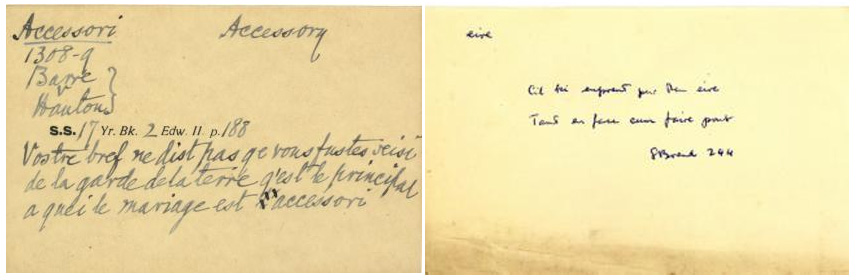 Accessori Accessory
1308-9
Barre
v
Hauton
S.S. 17 Yr. Bk. 2 Edw. II. p. 188
Vostre bref ne dist pas qe vous fustes seisi
de la garde de la terre q'est le principal
a quei le mariage est accessori
eire
Cil ki enprent pur Deu eire
Tant en face cum faire puit
SBrend 244